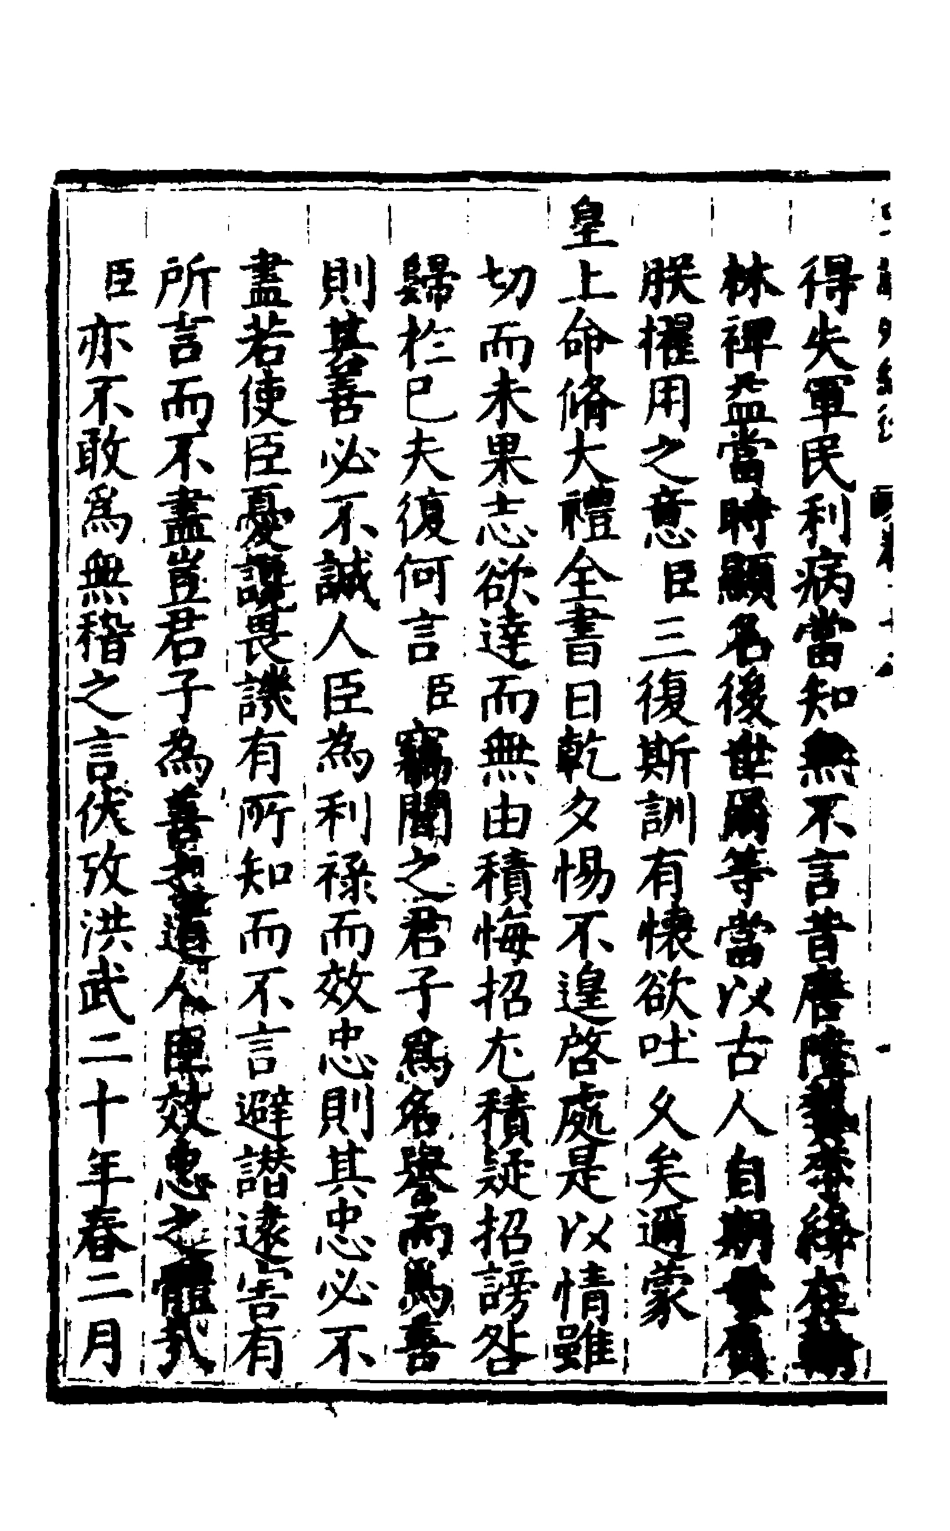 得失軍民利病當知無不言昔唐陸贄李絳在翰
林裨益當時顯名後世爾等當以古人自期毋負
朕擢用之意臣三復斯訓有懷欲吐久矣邇蒙
皇上命脩大禮全書日乾夕惕不遑啓處是以情雖
切而未果志欲達而無由積悔招尤積疑招謗咎
歸於已夫復何言臣竊聞之君子爲名譽而爲善
則其善必不誠人臣為利祿而效忠則其忠必不
盡若使臣憂讒畏譏有所知而不言避譖遠害有
所言而不盡豈君子為善之道人臣效忠之體哉
臣亦不敢爲無稽之言伏攷洪武二十年春二月